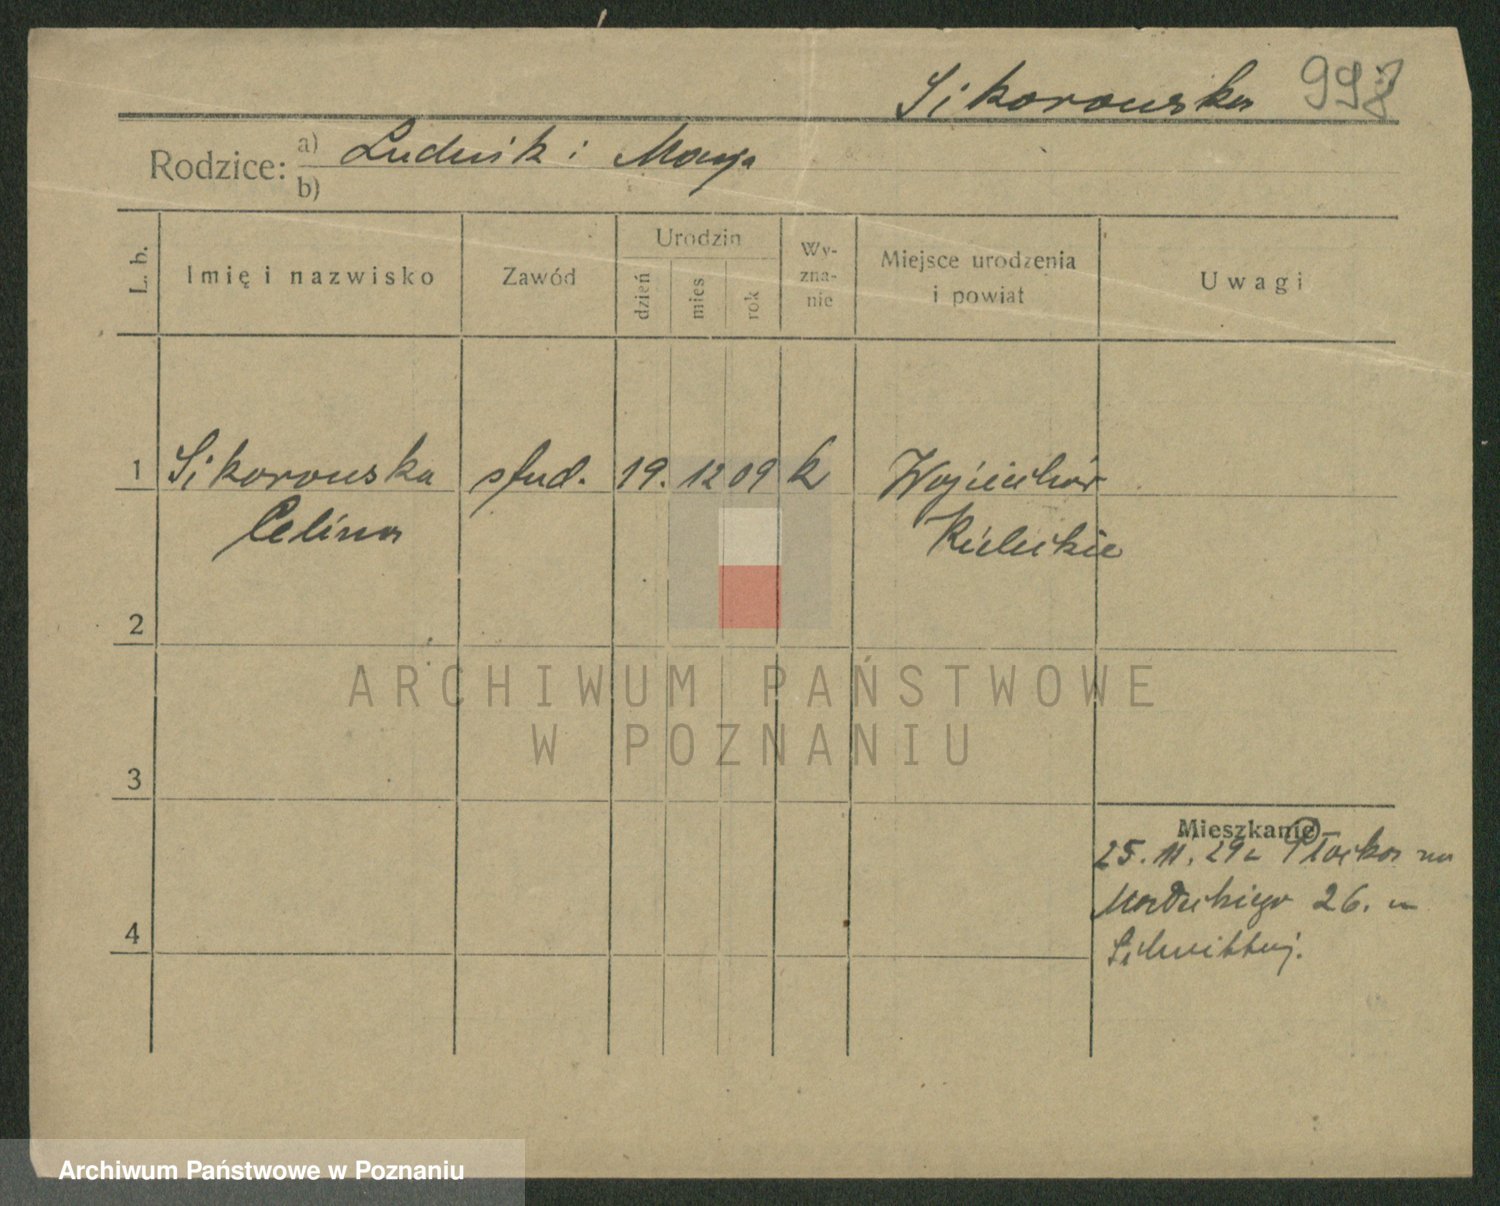 Sikorowska 998
Rodzice: a) Ludwik i Marja
b)
L. b. Imię i nazwisko Zawód Urodzin dzień mies rok Wy-zna-nie Miejsce urodzenia i powiat Uwagi
1 Sikorowska stud. 19. 12 09 k Wojciechów
Celina Kieleckie
2
3
Mieszkanie
25. 11. 29 z Płocka na
26.
4
ARCHIWUM PAŃSTWOWE
W POZNANIU
Archiwum Państwowe w Poznaniu